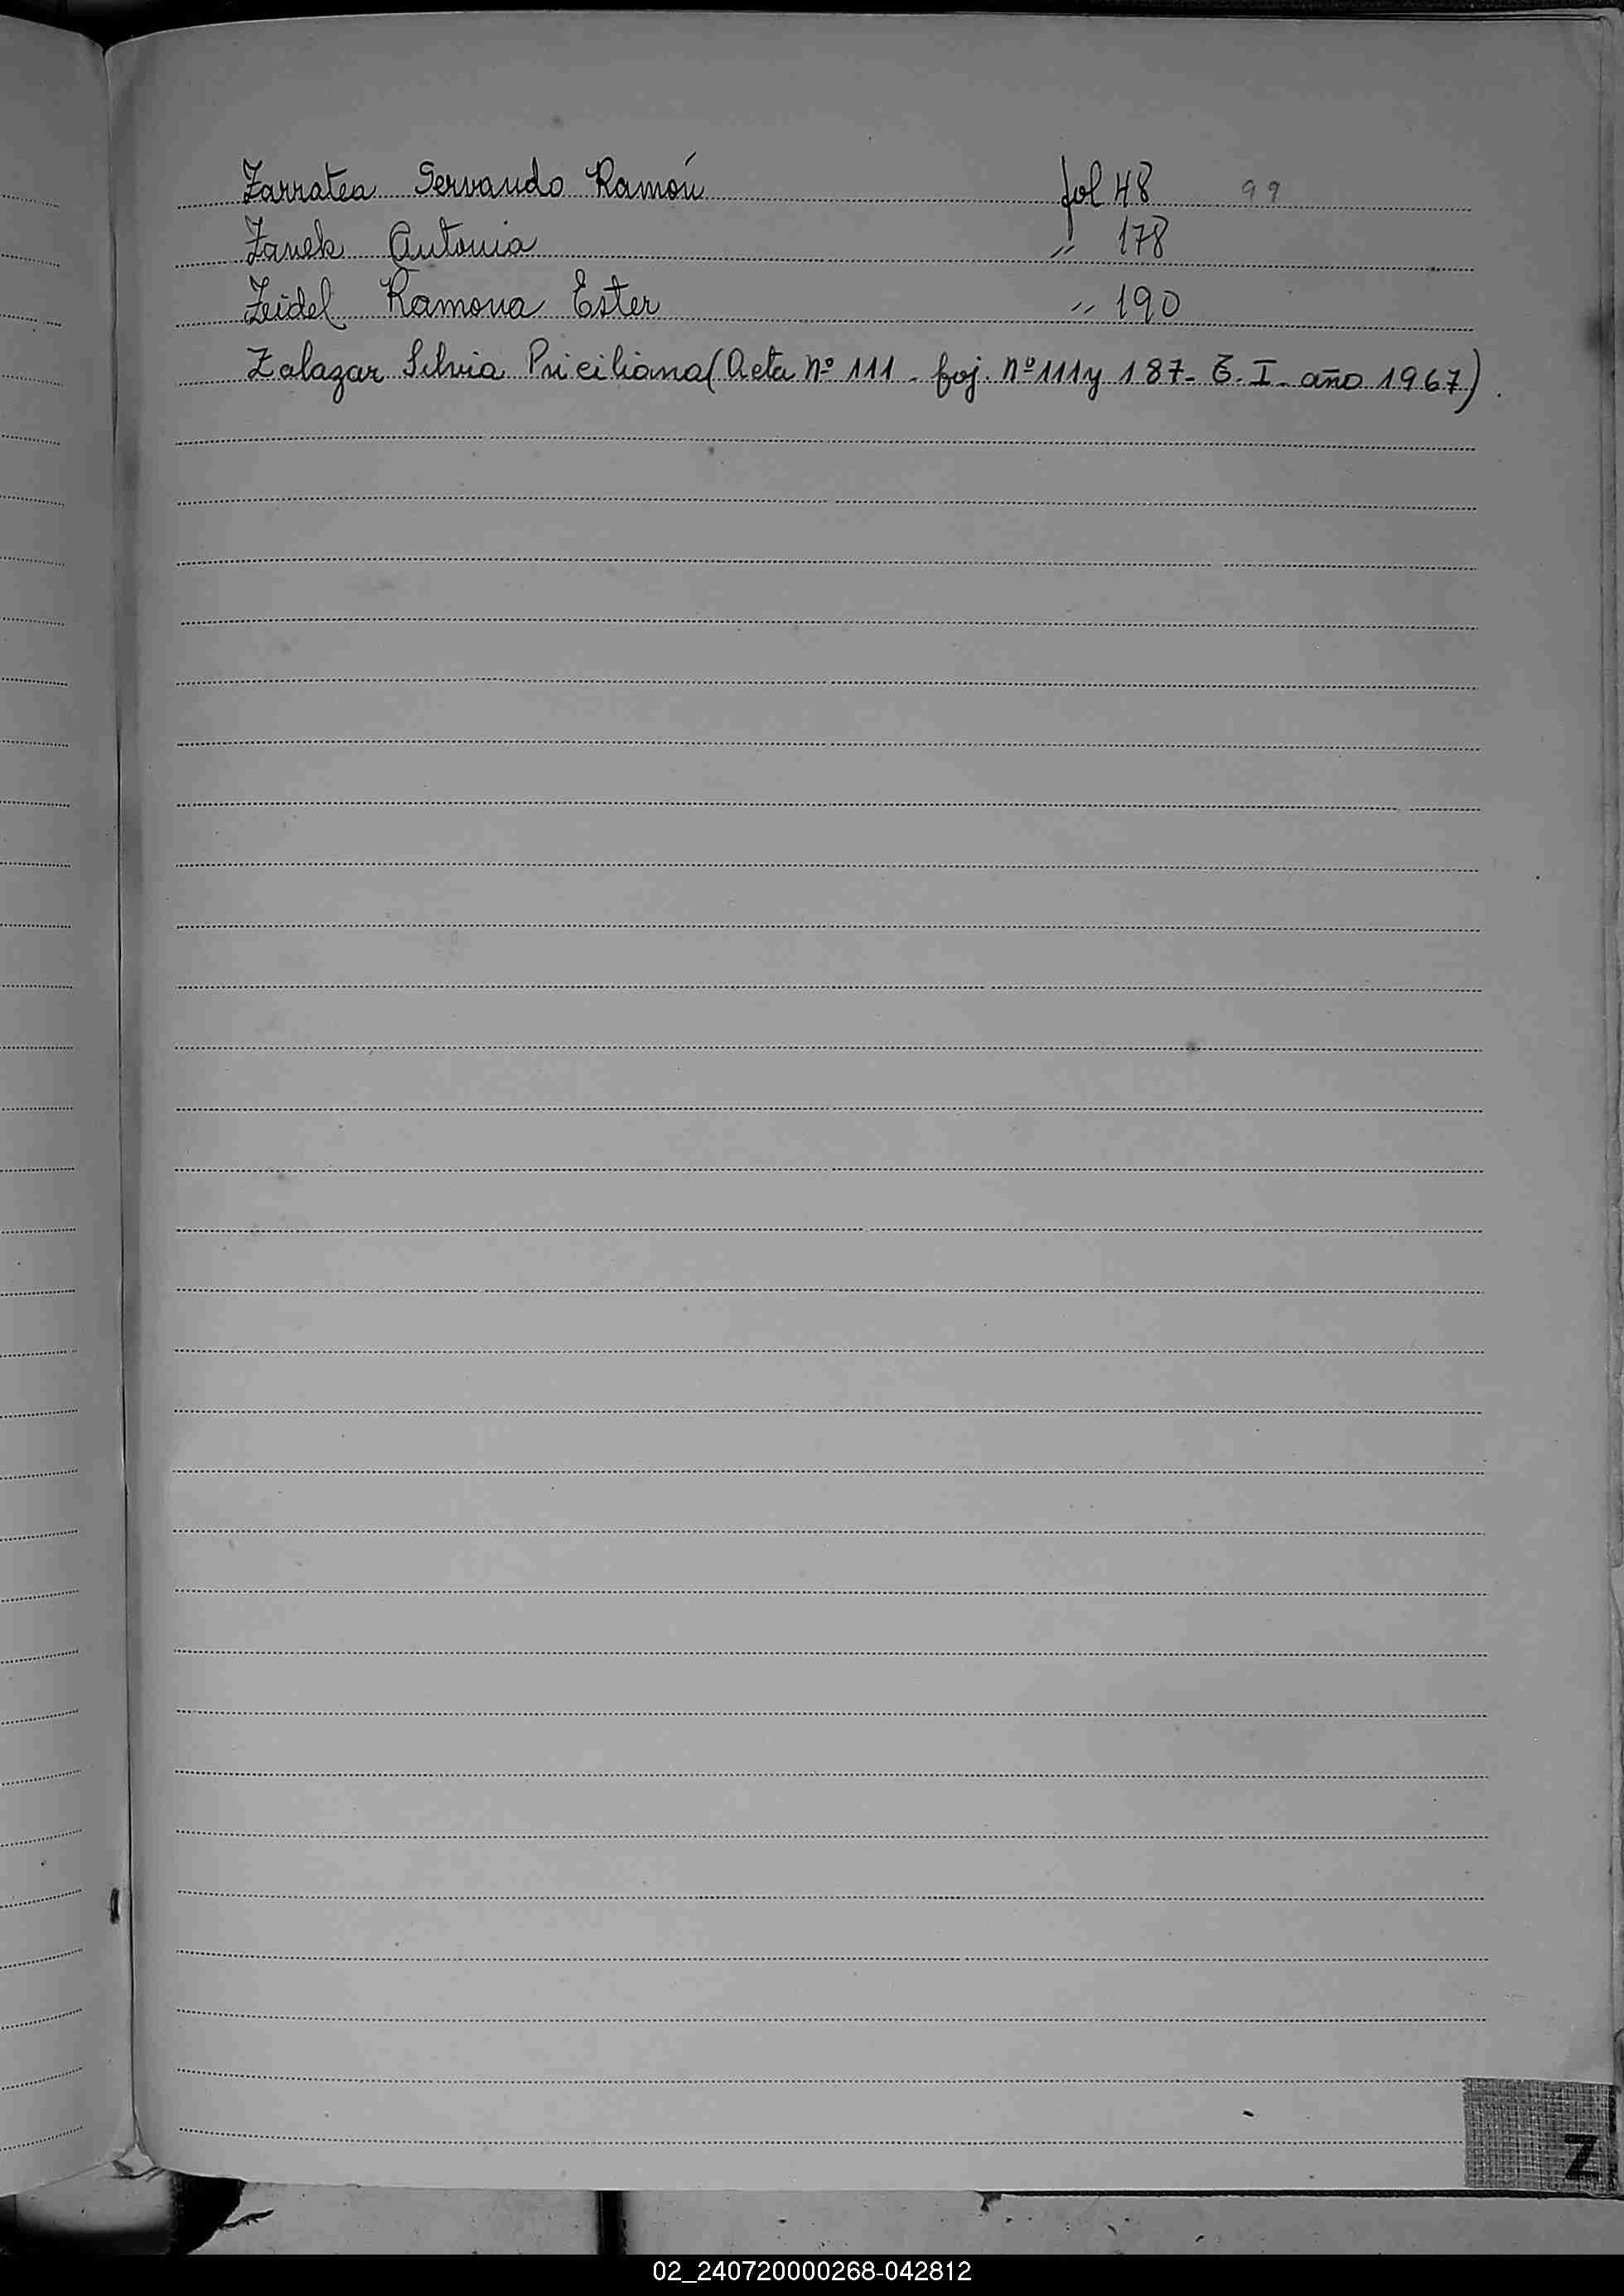 Zarratea Servando Ramón fol 48 99
Zanek Antonia " 178
Zeidel Ramona Ester " 190
Zalazar Silvia Priciliana (Acta nº 111 - foj. nº 111 y 187 - T. I - año 1967).
Z
02_240720000268-042812